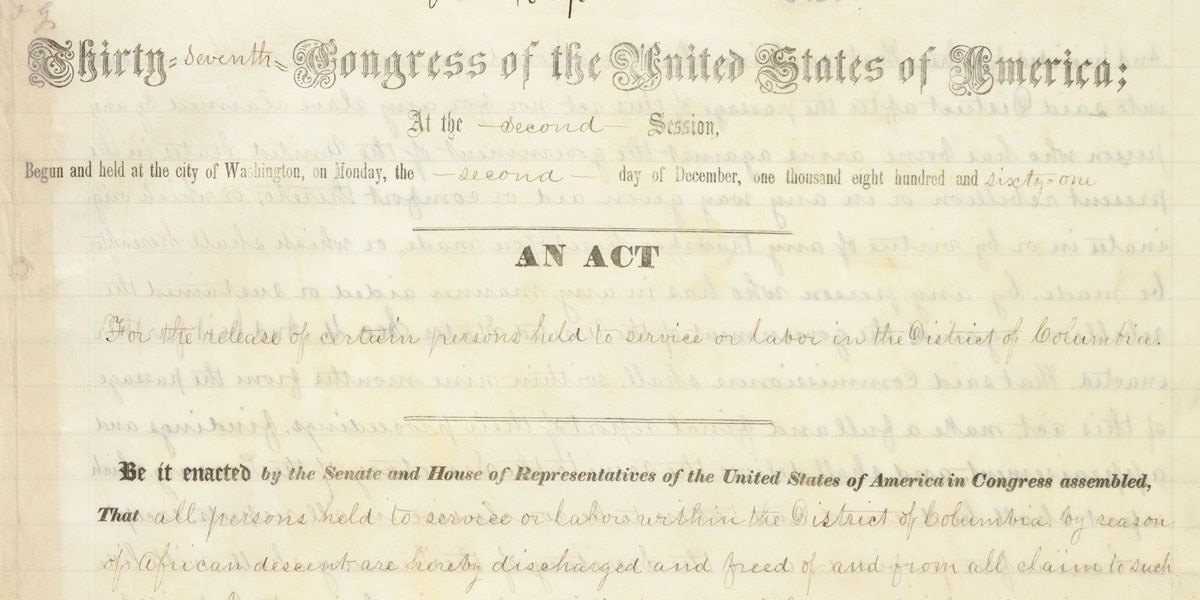 Thirty-seventh Congress of the United States of America;
At the second Session,
Begun and held at the city of Washington, on Monday, the second day of December, one thousand eight hundred and sixty-one
AN ACT
For the release of certain persons held to service or labor in the District of Columbia.
Be it enacted by the Senate and House of Representatives of the United States of America in Congress assembled,
That all persons held to service or labor within the District of Columbia by reason
of African descent are hereby discharged and freed of and from all claim to such